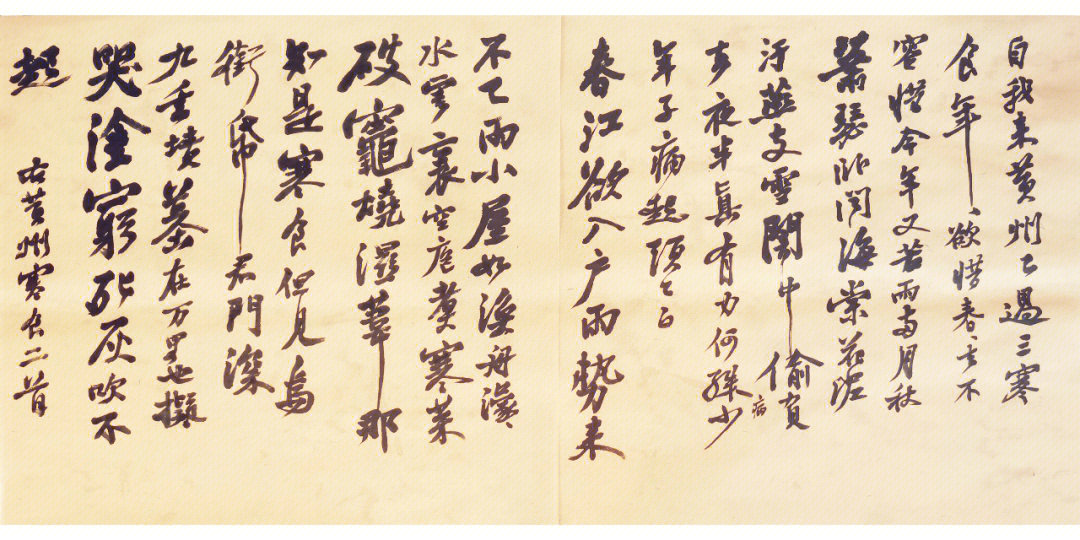 自我来黄州已過三寒
食年々欲惜春々去不
容惜今年又苦雨兩月秋
蕭瑟卧聞海棠花泥
汙燕支雪闇中偷負
去夜半真有力何殊少
病
年子病起頭已白
春江欲入户雨勢来
不已雨小屋如漁舟濛々
水雲裏空庖煮寒菜
破竈燒濕葦那
知是寒食但見烏
銜帋君門深
九重墳墓在万里也擬
哭塗窮死灰吹不
起
右黄州寒食二首